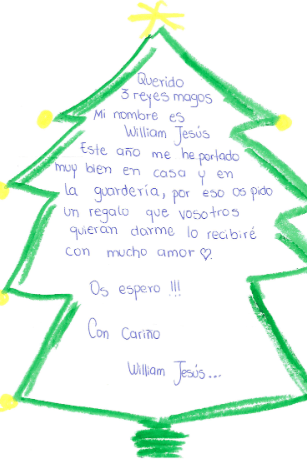 Querido
3 reyes magos
Mi nombre es
William Jesús
Este año me he portado
muy bien en casa y en
la guardería, por eso os pido
un regalo que vosotros
quieran darme lo recibiré
con mucho amor ♡.
Os espero !!!
Con Cariño
William Jesús...